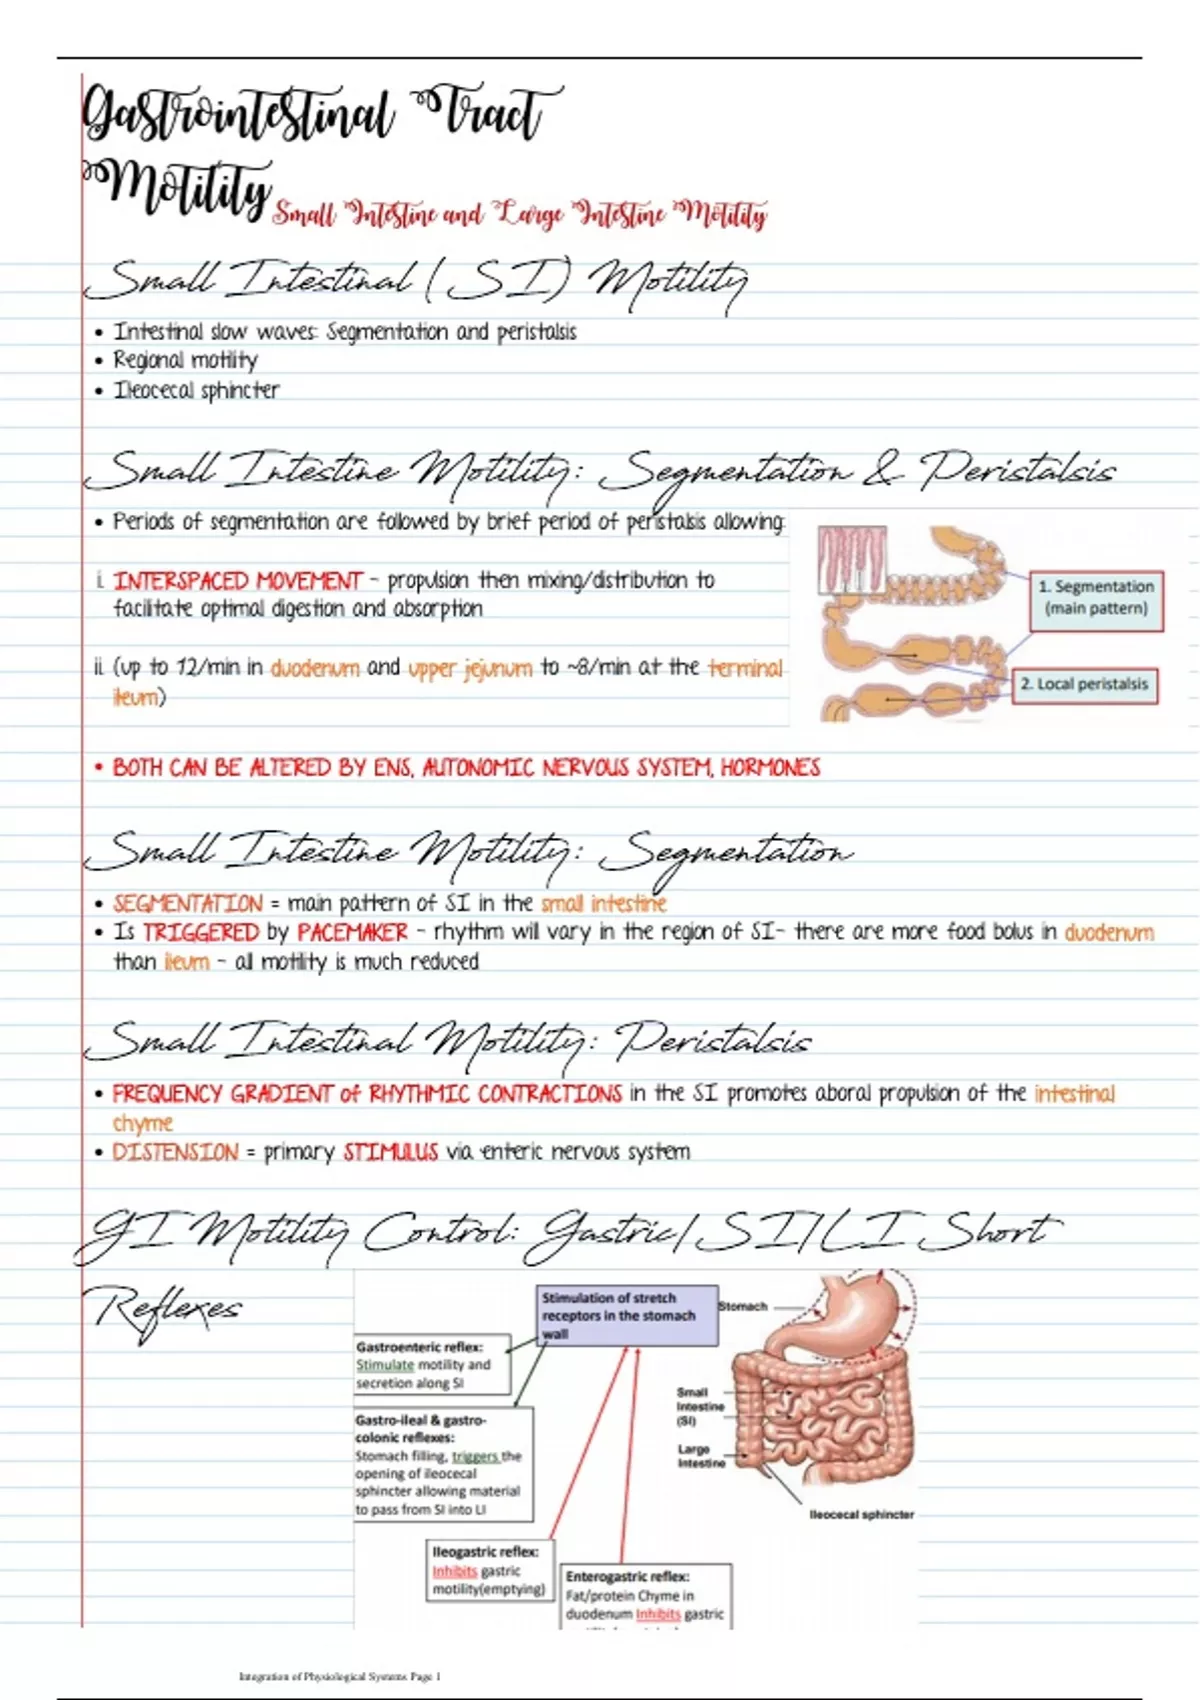 Gastrointestinal Tract
Motility Small Intestine and Large Intestine Motility
Small Intestinal (SI) Motility
• Intestinal slow waves: Segmentation and peristalsis
• Regional motility
• Ileocecal sphincter
Small Intestine Motility: Segmentation & Peristalsis
• Periods of segmentation are followed by brief period of peristalsis allowing:
i. INTERSPACED MOVEMENT - propulsion then mixing/distribution to
facilitate optimal digestion and absorption
ii. (up to 12/min in duodenum and upper jejunum to ~8/min at the terminal
ileum)
1. Segmentation
(main pattern)
2. Local peristalsis
• BOTH CAN BE ALTERED BY ENS, AUTONOMIC NERVOUS SYSTEM, HORMONES
Small Intestine Motility: Segmentation
• SEGMENTATION = main pattern of SI in the small intestine
• Is TRIGGERED by PACEMAKER - rhythm will vary in the region of SI- there are more food bolus in duodenum
than ileum - all motility is much reduced
Small Intestinal Motility: Peristalsis
• FREQUENCY GRADIENT of RHYTHMIC CONTRACTIONS in the SI promotes aboral propulsion of the intestinal
chyme
• DISTENSION = primary STIMULUS via enteric nervous system
GI Motility Control: Gastric/SI/LI Short
Reflexes
Stimulation of stretch
receptors in the stomach
wall
Gastroenteric reflex:
Stimulate motility and
secretion along SI
Gastro-ileal & gastro-
colonic reflexes:
Stomach filling, triggers the
opening of ileocecal
sphincter allowing material
to pass from SI into LI
Ileogastric reflex:
Inhibits gastric
motility(emptying)
Enterogastric reflex:
Fat/protein Chyme in
duodenum Inhibits gastric
Stomach
Small
Intestine
(SI)
Large
Intestine
Ileocecal sphincter
Integration of Physiological Systems Page 1